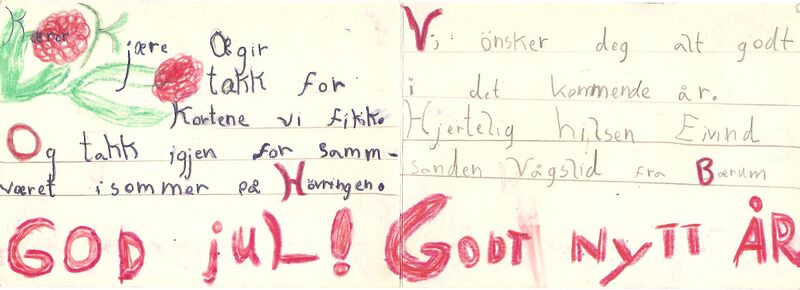 Kjære Ægir
takk for
Kortene vi fikk.
Og takk igjen for samm-
været i sommer på Høvringen.
GOD jUL!
Vi ønsker deg alt godt
i det kommende år.
Hjertelig hilsen Eivind
sanden Vågslid fra Bærum
GODT NYTT ÅR